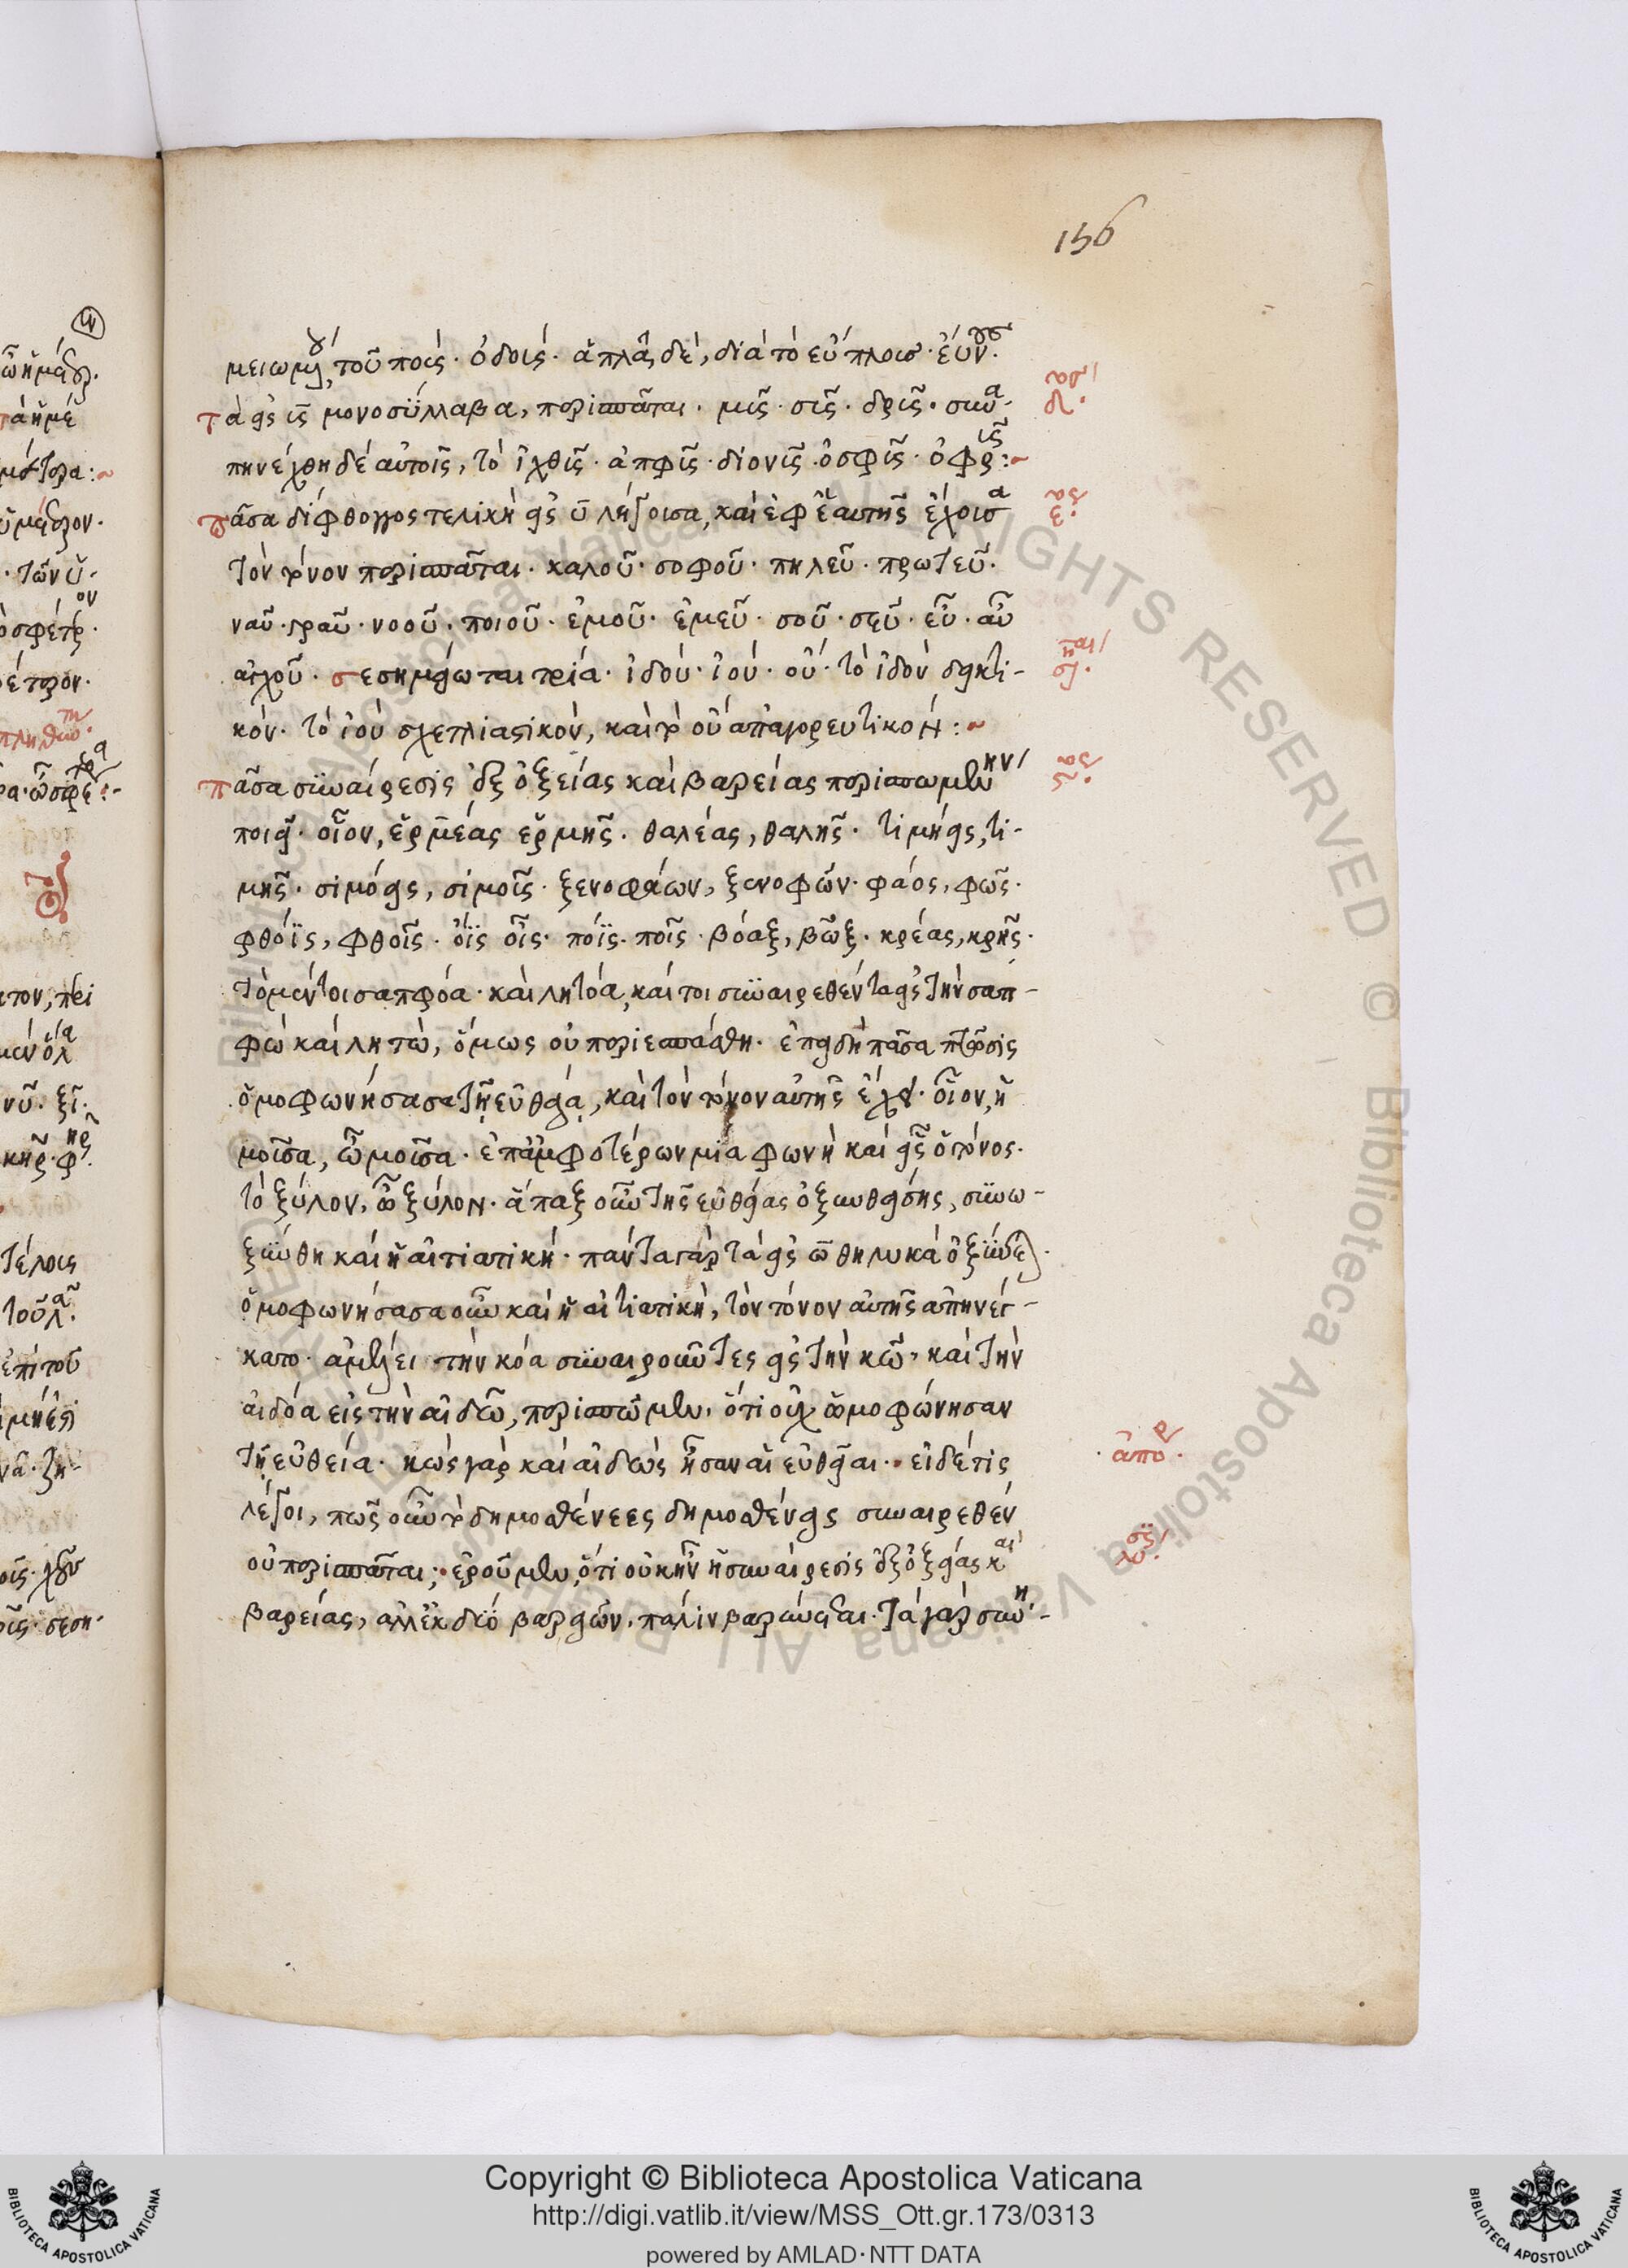 156
μειωμένου τοῦ πούς. ὀδούς. ἁπλᾶ δὲ, διὰ τὸ εὔπλους. εὔνους.
τὰ εἰς υ̅ς̅ μονοσύλλαβα, περισπᾶται. μῦς. σῦς. δρῦς. συνα-
πηνέχθη δὲ αὐτοῖς, τὸ ἰχθῦς. ἀπφῦς. διονῦς. ὀσφῦς. ὀφρῦς:~
πᾶσα δίφθογγος τελικὴ εἰς υ̅ λήγουσα, καὶ ἐφ' ἑαυτῆς ἔχουσα
τὸν τόνον περισπᾶται. καλοῦ. σοφοῦ. πηλεῦ. πρωτεῦ.
ναῦ. γραῦ. νοοῦ. ποιοῦ. ἐμοῦ. ἐμεῦ. σοῦ. σεῦ. εὖ. αὖ
αὐχοῦ. σεσημείωται τρία. ἰδού. ἰού. οὔ. τὸ ἰδοὺ δεικτι-
κόν. τὸ ἰοὺ σχετλιαστικὸν, καὶ τὸ οὔ ἀπαγορευτικόν:~
πᾶσα συναίρεσις ἐξ ὀξείας καὶ βαρείας περισπωμένην
ποιεῖ. οἷον, ἑρμέας ἑρμῆς. θαλέας, θαλῆς. τιμήεις, τι-
μῆς. σιμόεις, σιμοῦς. ξενοφάων, ξενοφῶν. φάος, φῶς.
φθόϊς, φθοῖς. ὄϊς οἶς. πόϊς. ποῖς. βόαξ, βῶξ. κρέας, κρῆς.
τὸ μέντοι σαπφόα. καὶ λητόα, καίτοι συναιρεθέντα εἰς τὴν σαπ-
φώ καὶ λητώ, ὅμως οὐ περιεσπάσθη. ἐπειδὴ πᾶσα πτῶσις
ὁμοφωνήσασα τῇ εὐθείᾳ, καὶ τὸν τόνον αὐτῆς ἔχει. οἷον, ἡ
μοῦσα, ὦ μοῦσα. ἐπ' ἀμφοτέρων μία φωνὴ καὶ εἷς ὁ τόνος.
τὸ ξύλον, ὦ ξύλον. ἅπαξ οὖν τῆς εὐθείας ὀξυνθείσης, συνω-
ξύνθη καὶ ἡ αἰτιατική. πάντα γὰρ τὰ εἰς ω̅ θηλυκὰ ὀξύνεται.
ὁμοφωνήσασα οὖν καὶ ἡ αἰτιατικὴ, τὸν τόνον αὐτῆς ἀπηνέγ-
κατο. ἀμέλει τὴν κόα συναιροῦντες εἰς τὴν κῶ, καὶ τὴν
αἰδόα εἰς τὴν αἰδῶ, περισπῶμεν. ὅτι οὐχ ὡμοφώνησαν
τῇ εὐθείᾳ. κώς γὰρ καὶ αἰδώς ἦσαν αἱ εὐθεῖαι. εἰ δέ τις
λέγοι, πῶς οὖν τὸ δημοσθένεες δημοσθένεις συναιρεθὲν
οὐ περισπᾶται; ἐροῦμεν, ὅτι οὐκ ἦν ἡ συναίρεσις ἐξ ὀξείας καὶ
βαρείας, ἀλλ' ἐκ δύο βαρειῶν. πάλιν βαρύνεται. τὰ γὰρ συνῃ-
δ.
ε.
ἀπορ.
λύσις